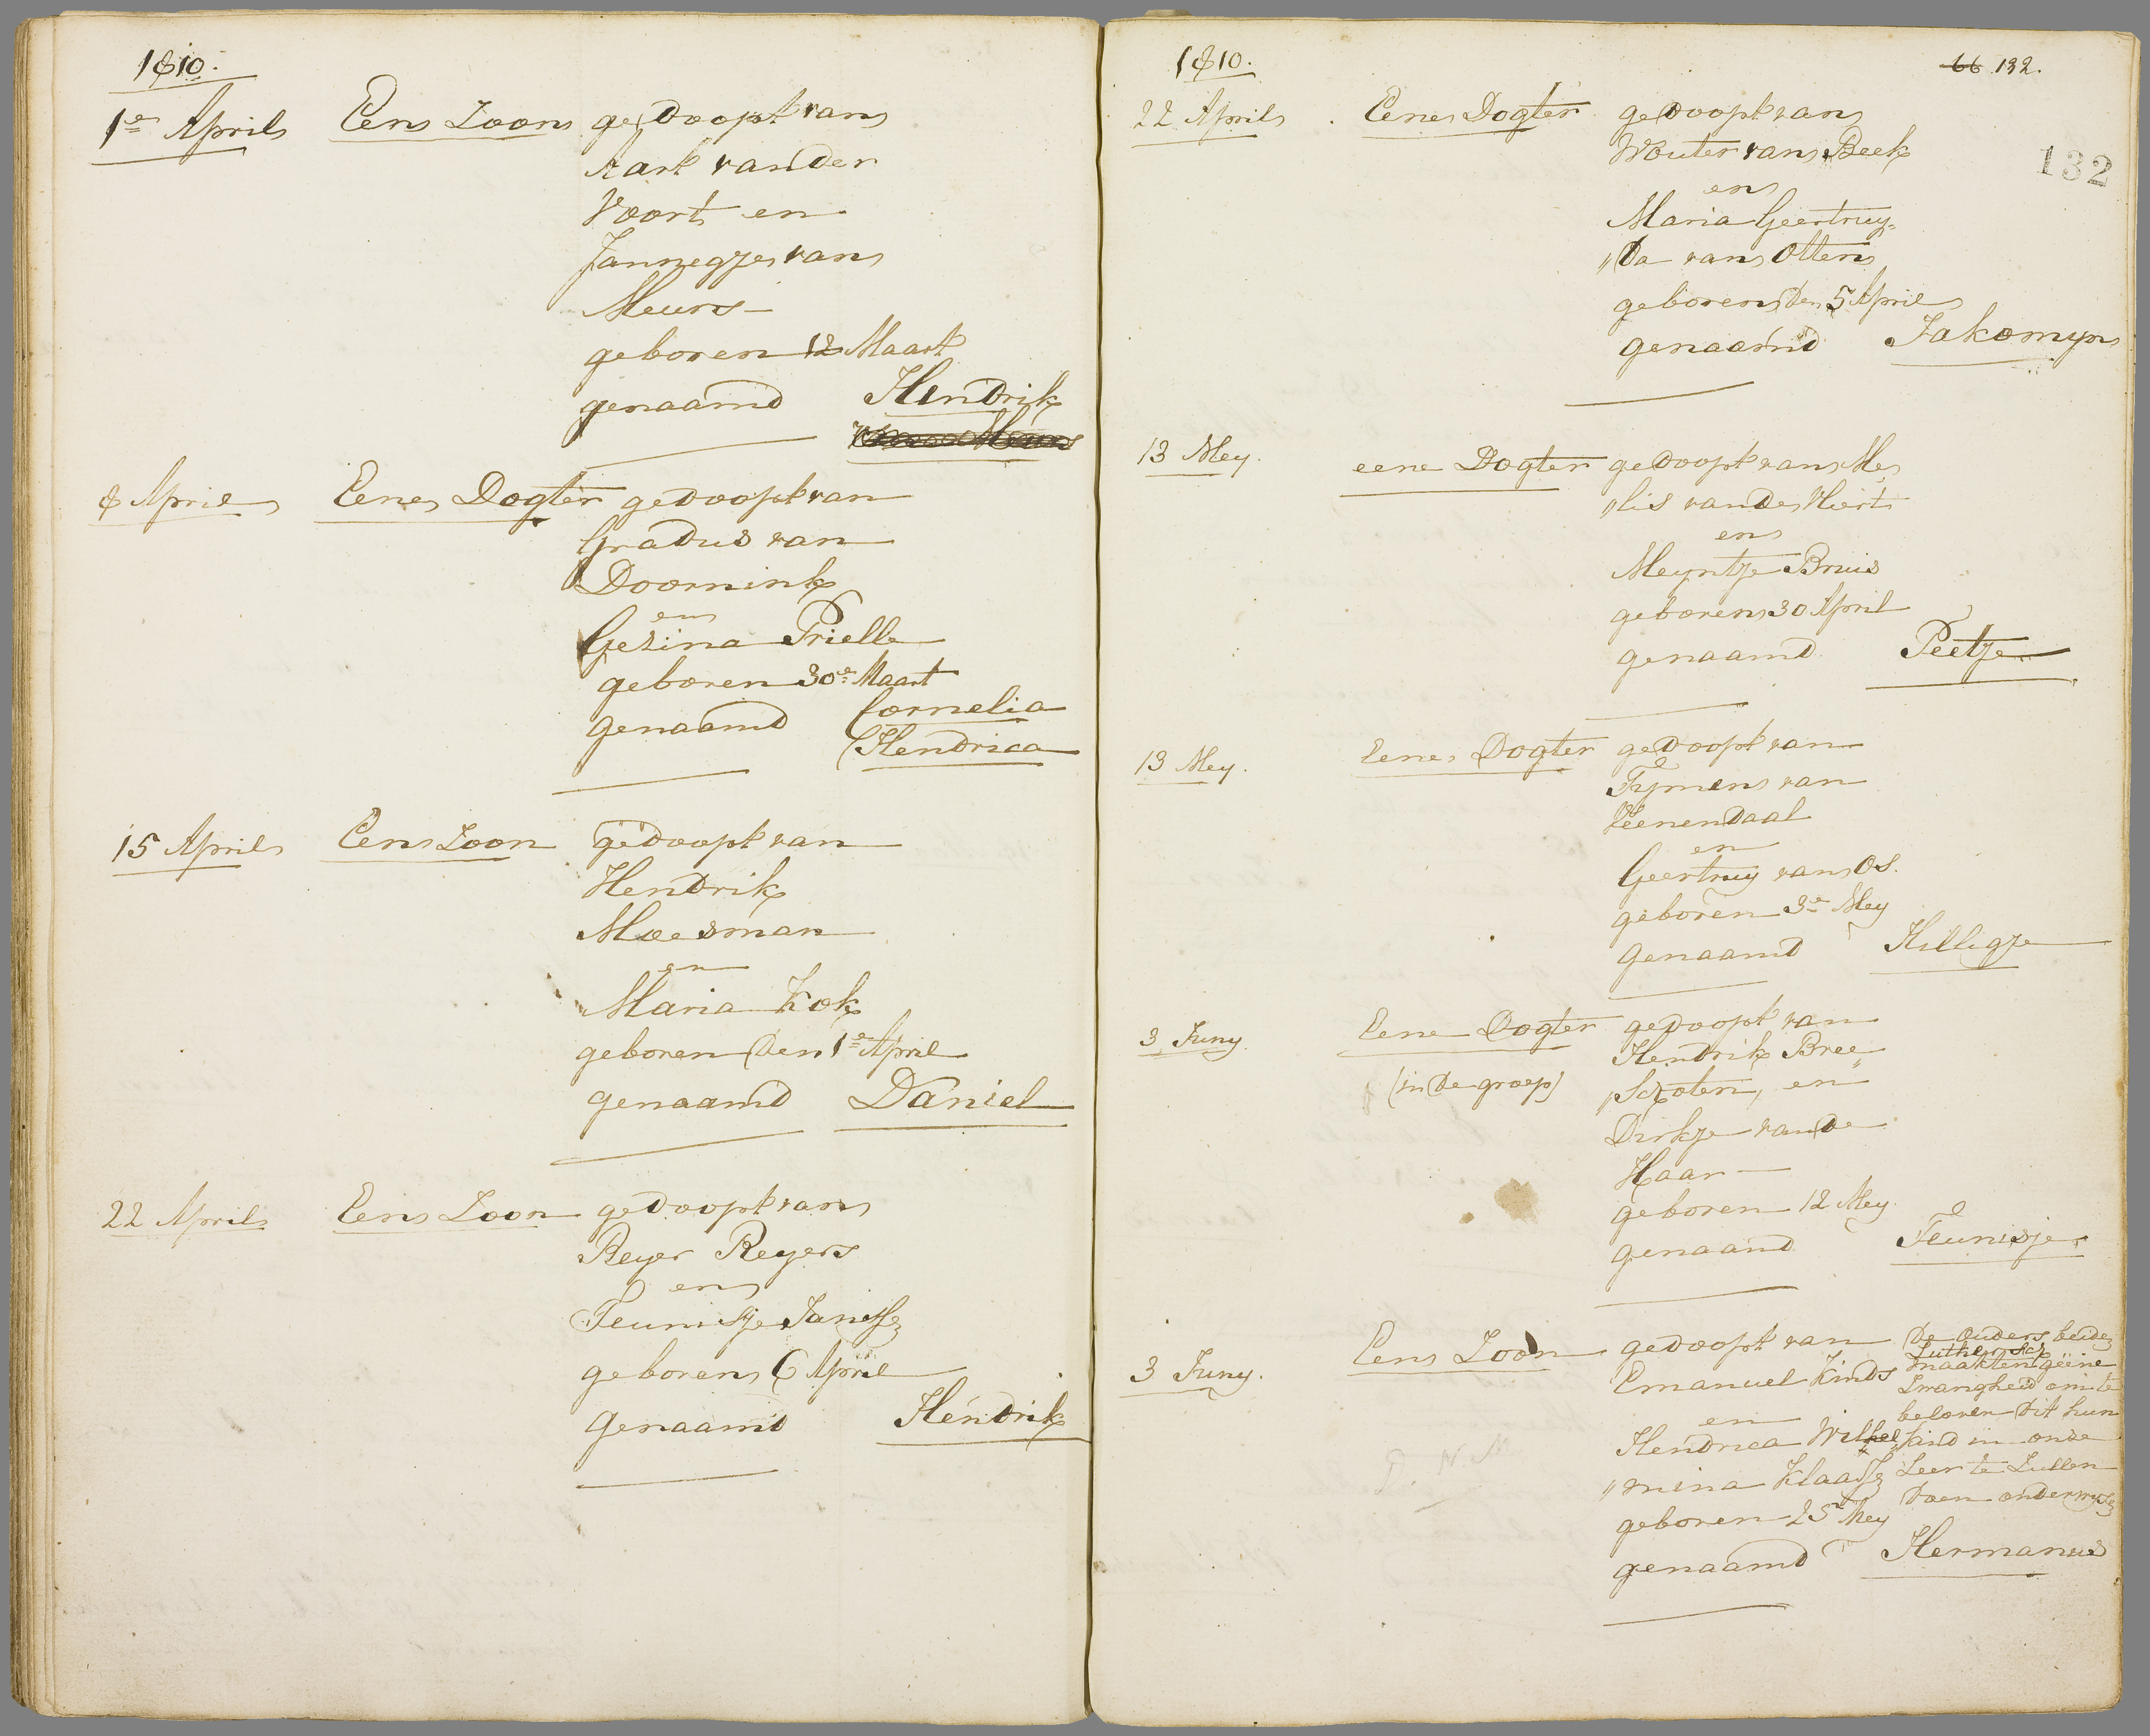 1810.
1e April Een Zoon gedoopt van
Aart van der
Voort en
Jannegje van
Meurs
geboren 12 Maart
genaamd Hendrik
8 April Eene Dogter gedoopt van
Gradus van
Doornink
en
Gezina Prielle
geboren 30e Maart
genaamd Cornelia
Hendrica
15 April Een Zoon gedoopt van
Hendrik
Moesman
en
Maria Kok
geboren den 1e April
genaamd Daniel
22 April Een Zoon gedoopt van
Reyer Reyers
en
Teunisje Janssz
geboren 6 April
genaamd Hendrik
1810.
66 132.
132
22 April Eene Dogter gedoopt van
Wouter van Beek
en
Maria Geertruy-
„da van Otten
geboren den 5 April
genaamd Jakomyn
13 Mey. eene Dogter gedoopt van Me„
„lis van de Vliert
en
Meyntje Bruis
geboren 30 April
genaamd Peetje
13 Mey. Eene Dogter gedoopt van
Tymen van
Veenendaal
en
Geertruy van Os.
geboren 3e Mey
genaamd Hilligje
3 Juny. Eene Dogter gedoopt van
Hendrik Bree„
(in de groep) „Schoten, en
Dirkje van de
Haar
geboren 12 Mey
genaamd Teunisje
3 Juny. Een Zoon gedoopt van
Emanuel Kinds
en
Hendrica Wilhel„
„mina Klaassz
geboren 25 Mey
genaamd Hermanus
De Ouders beide
Luthersch
maakten geene
Zwarigheid om te
beloven dit hun
kind in onse
Leer te Zullen
doen onderwysen
P. N. M